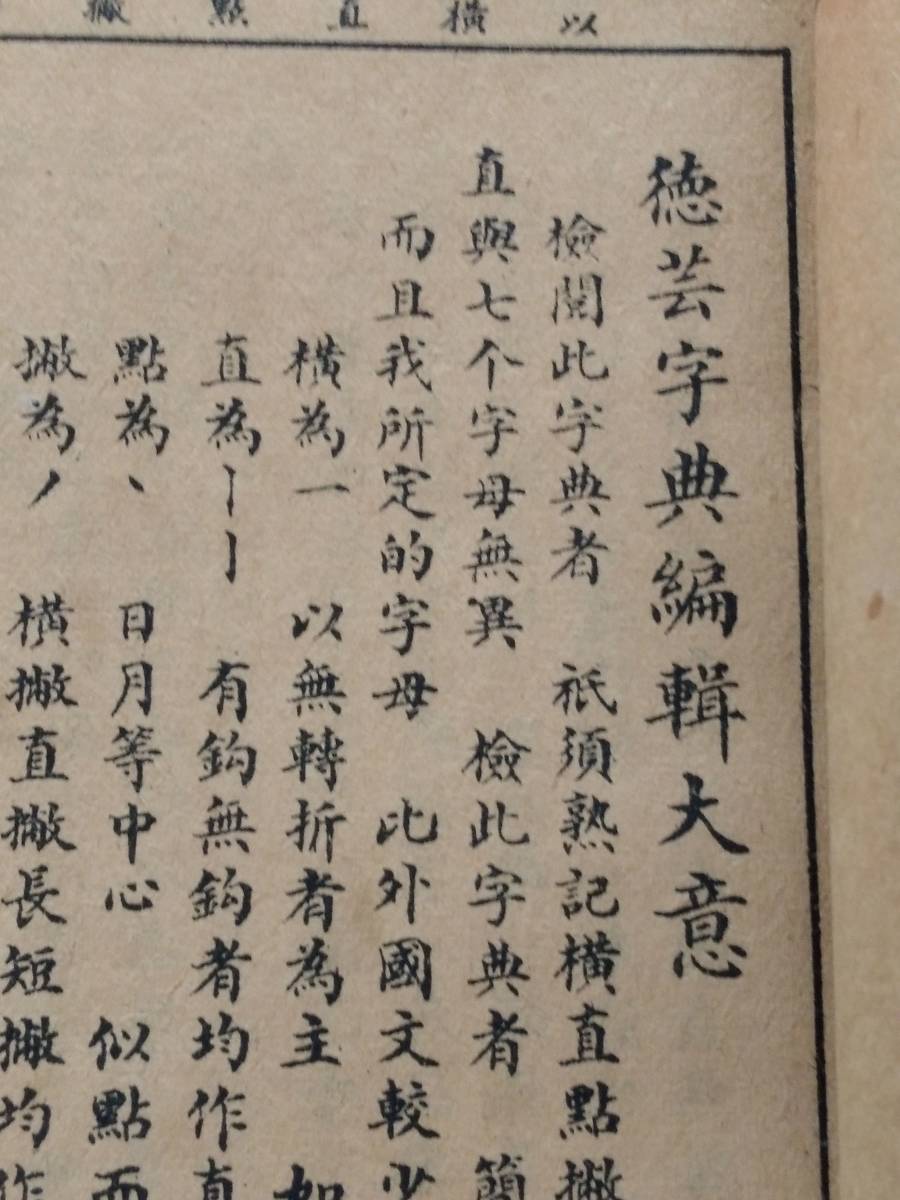 以橫直點撇
德芸字典編輯大意
檢閱此字典者 祇須熟記橫直點撇
直與七个字母無異 檢此字典者 簡
而且我所定的字母 比外國文較少
橫為一 以無轉折者為主 如
直為丨亅 有鈎無鈎者均作直
點為丶 日月等中心 似點而
撇為丿 橫撇直撇長短撇均作